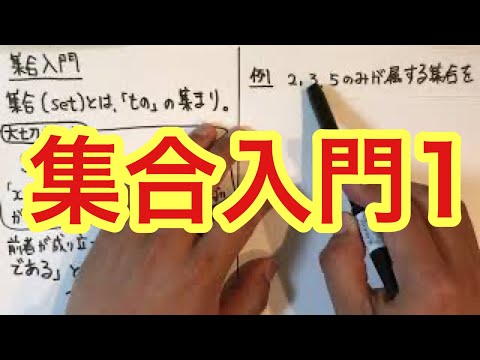 集合入門
集合(set)とは、「もの」の集まり。
大切
「x
が
前者が成り立つ
である」と
例 2, 3, 5のみが属する集合を
集合入門1